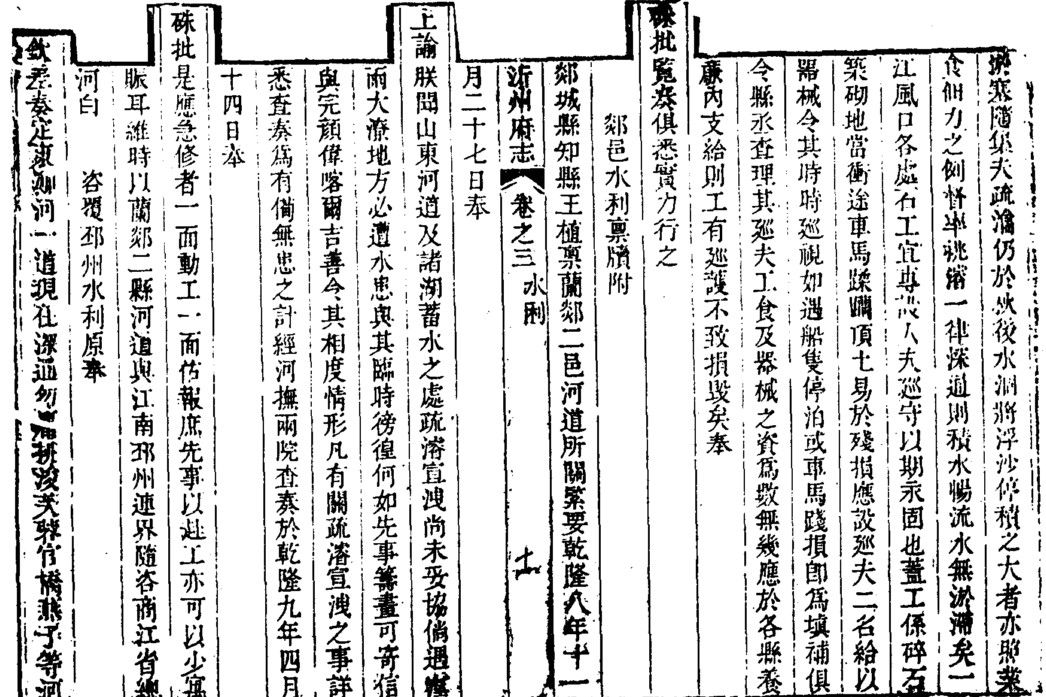 塞隨集夫疏瀹仍於秋後水涸將浮沙停積之大者亦照業
食佃力之例督率挑濬一律深通則積水暢流水無淤滯矣一
江風口各處石工宜專設人夫巡守以期永固也蓋工係碎石
築砌地當衝途車馬蹂躪頂土易於殘損應設廵夫二名給以
器械令其時時廵視如遇船隻停泊或車馬踐損卽爲填補俱
令縣丞查理其廵夫工食及器械之資爲數無幾應於各縣養
廉內支給則工有廵護不致損毀矣奉
硃批覽奏俱悉實力行之
郯邑水利稟牘附
郯城縣知縣王植稟蘭郯二邑河道所關緊要乾隆八年十一
沂州府志 卷之三 水利 十一
月二十七日奉
上諭朕聞山東河道及諸湖蓄水之處疏濬宣洩尚未妥協倘遇
雨大潦地方必遭水患與其臨時徬徨何如先事籌畫可寄信
與完顏偉喀爾吉善令其相度情形凡有關疏濬宣洩之事詳
悉查奏爲有備無患之計經河撫兩院查奏於乾隆九年四月
十四日奉
硃批是應急修者一面動工一面估報庶先事以赴工亦可以少寓
賑耳維時以蘭郯二縣河道與江南邳州連界隨咨商江省總
河白 咨覆邳州水利原奉
欽差奏定東泇河一道現在深通勿庸挑浚芙蓉官橋燕子等河